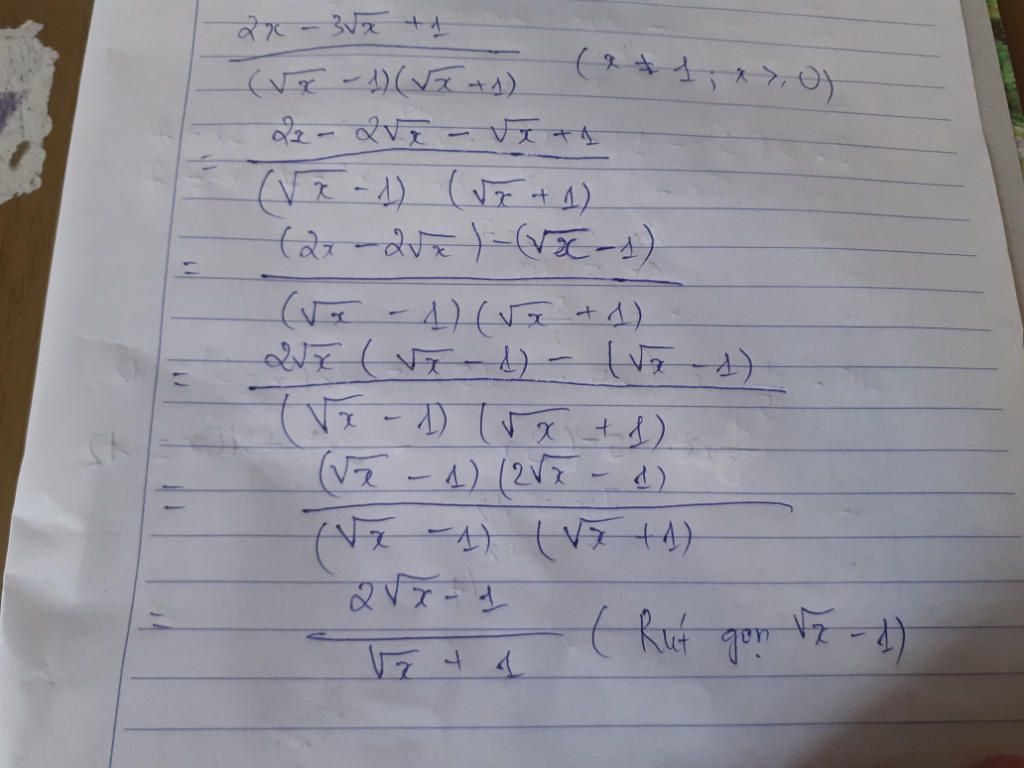 2x - 3√x + 1
(√x - 1)(√x + 1) (x ≠ 1; x ≥ 0)
2x - 2√x - √x + 1
=
(√x - 1) (√x + 1)
(2x - 2√x) - (√x - 1)
=
(√x - 1)(√x + 1)
2√x (√x - 1) - (√x - 1)
=
(√x - 1) (√x + 1)
(√x - 1)(2√x - 1)
=
(√x - 1) (√x + 1)
2√x - 1
=
√x + 1 (Rút gọn √x - 1)